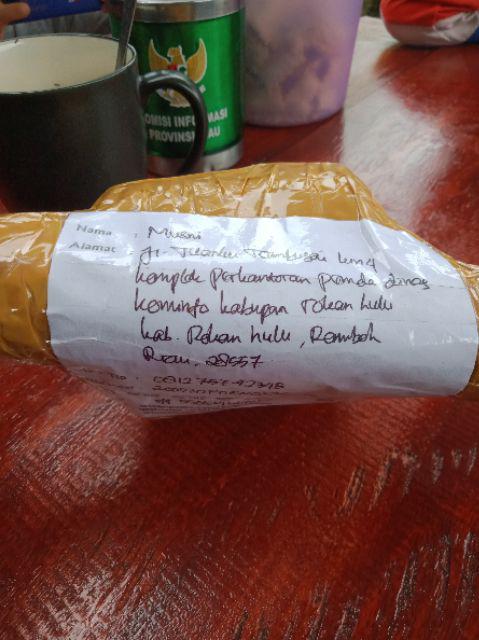 KOMISI INFORMASI
PROVINSI RIAU
Nama : Musni
Alamat : Jl. Tuanku Tambusai km 4
komplek perkantoran pemda dinas
kominfo kabupan rokan hulu
kab. Rokan hulu, Rambah
Riau. 28557